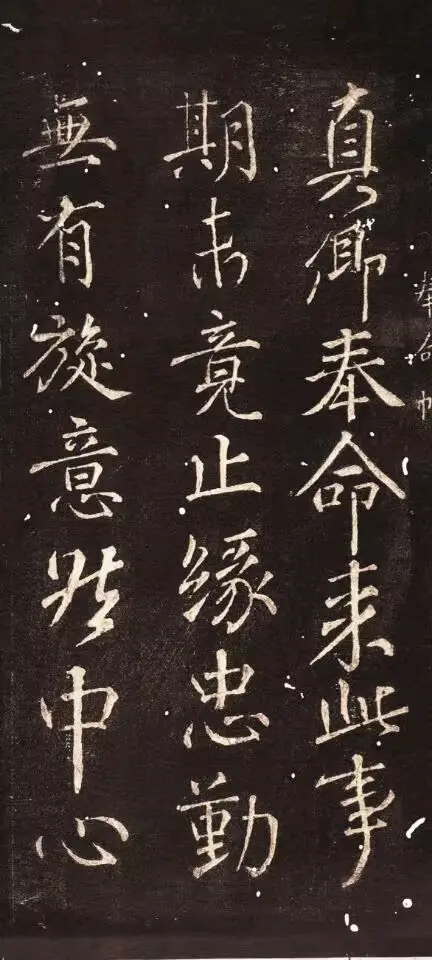 奉命帖
真卿奉命来此事
期未竟止緣忠勤
無有旋意然中心